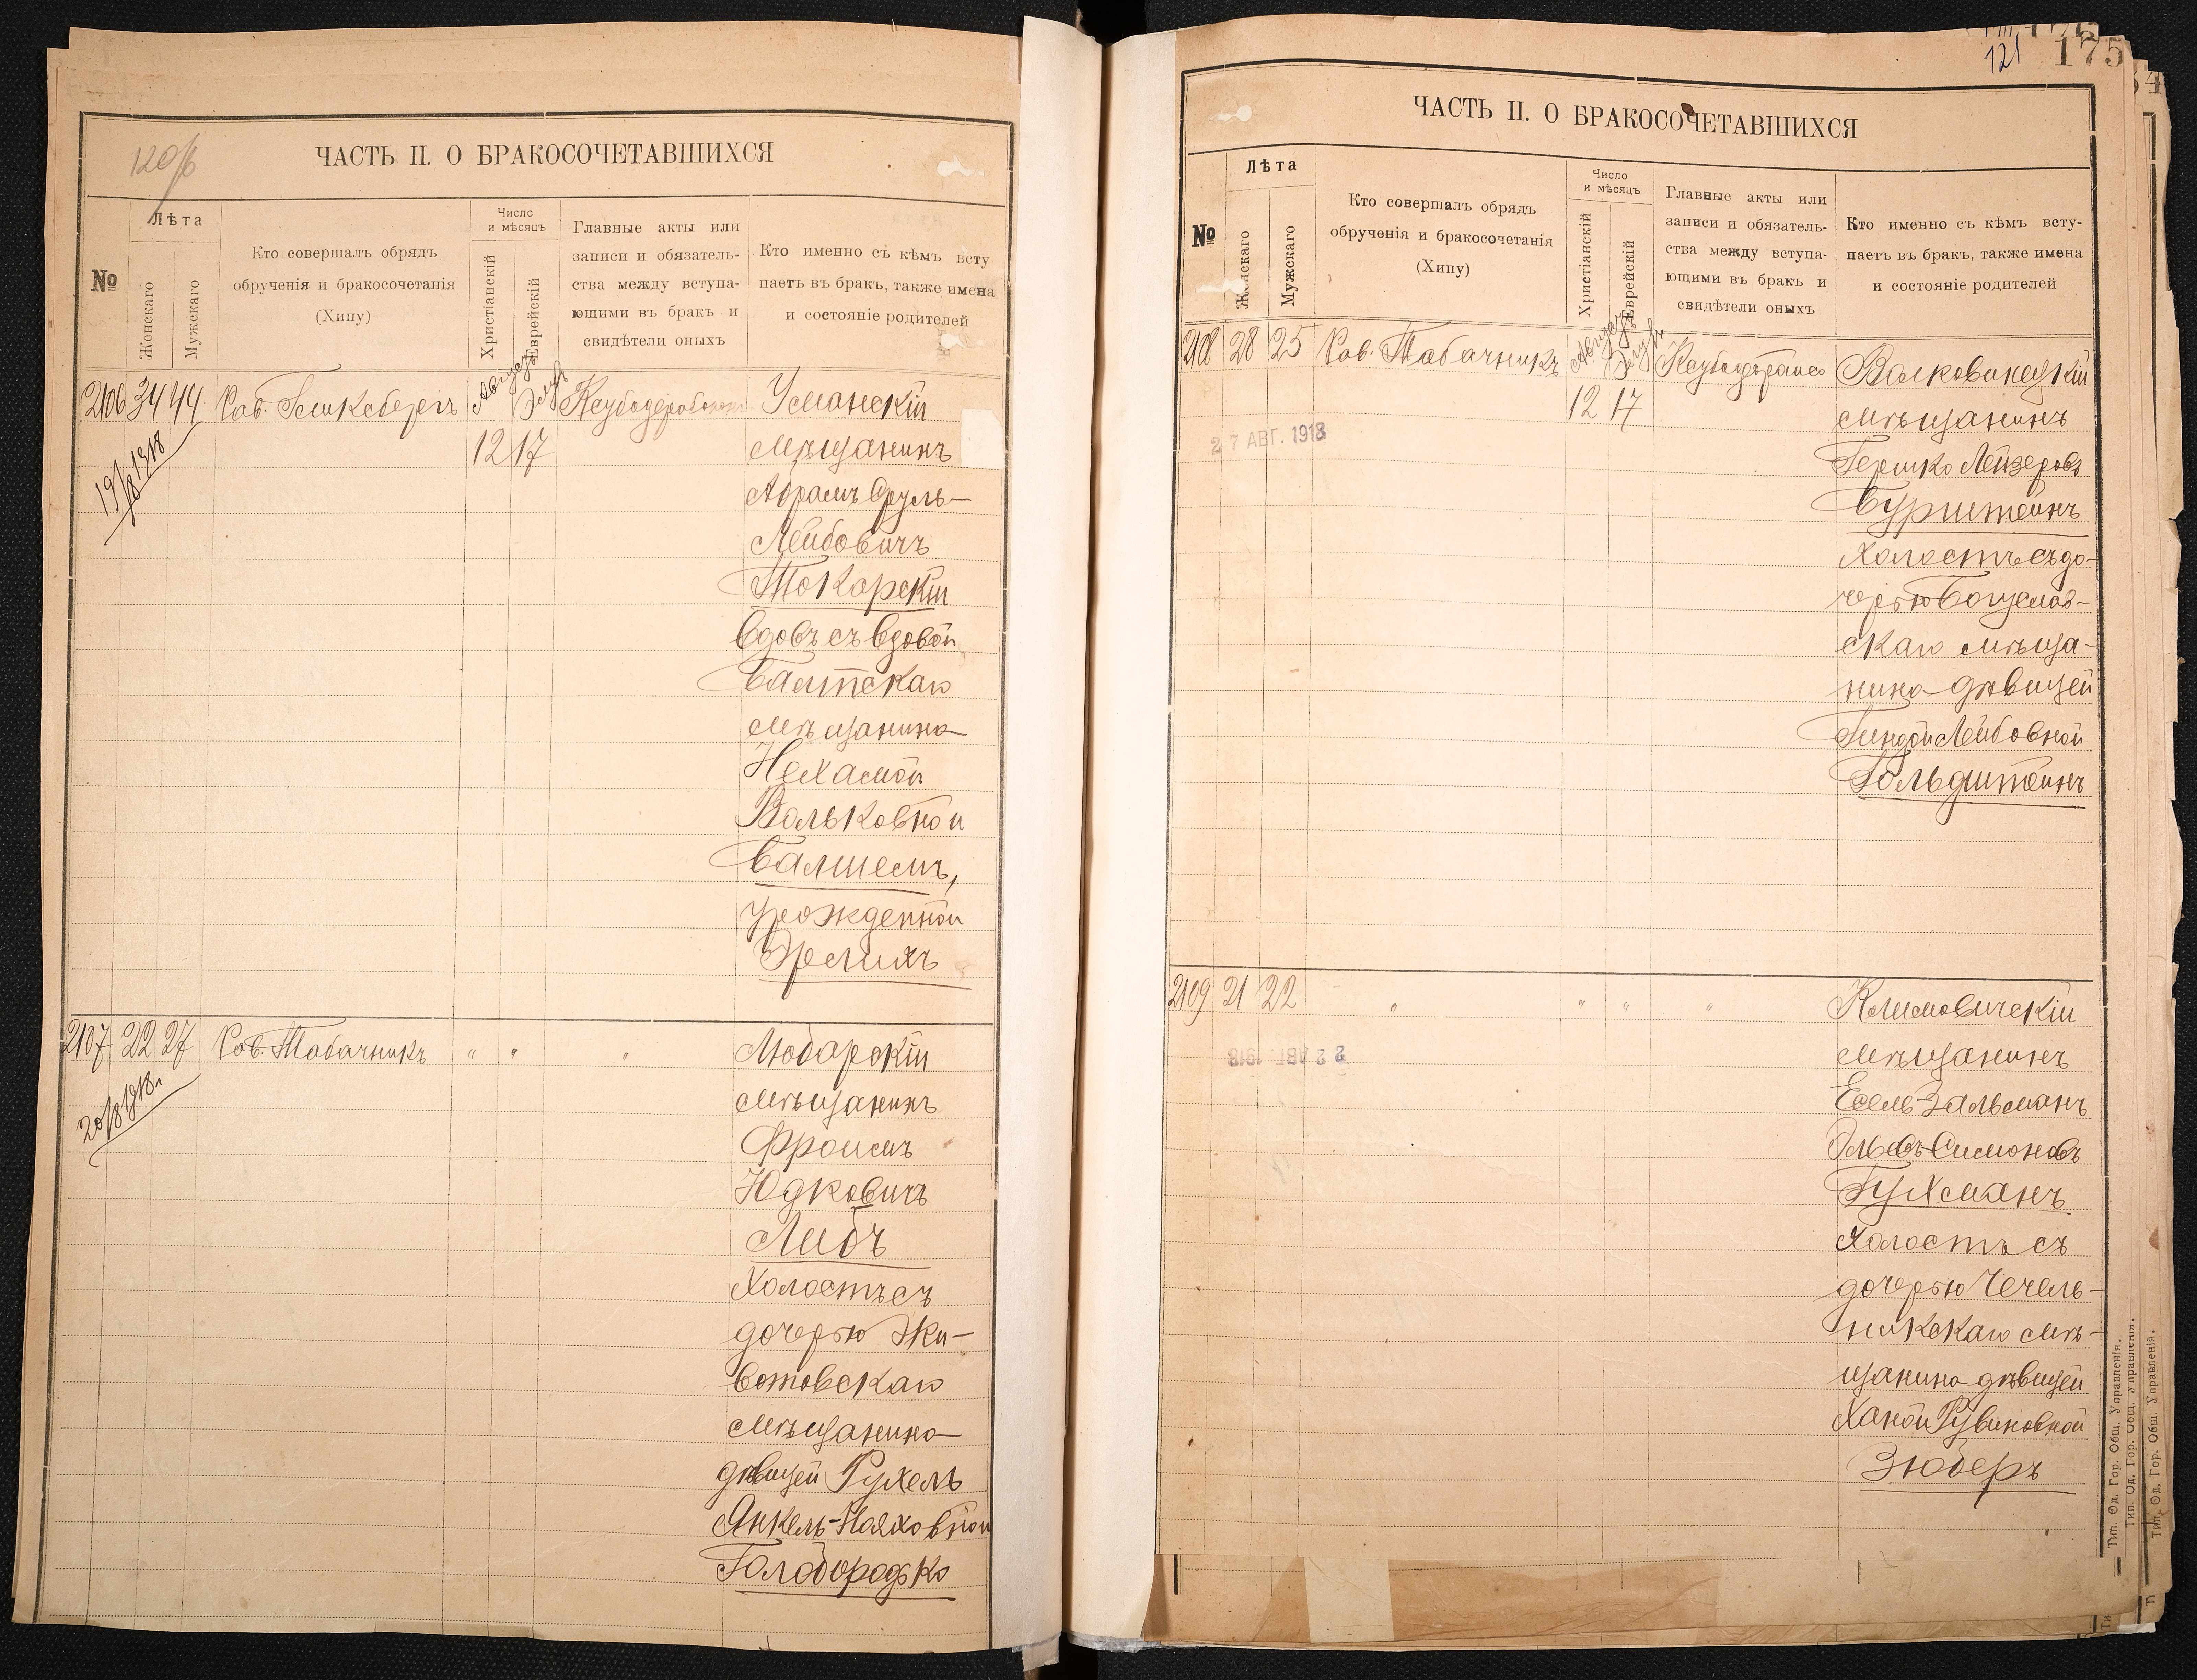 120/б
ЧАСТЬ II. О БРАКОСОЧЕТАВШИХСЯ
№
Лѣта
Женскаго
Мужскаго
Кто совершалъ обрядъ
обрученія и бракосочетанія
(Хипу)
Число
и мѣсяцъ
Христіанскій
Еврейскій
Главные акты или
записи и обязатель-
ства между вступа-
ющими въ бракъ и
свидѣтели оныхъ
Кто именно съ кѣмъ всту
паетъ въ бракъ, также имена
и состояніе родителей
2106 34 44 Рав. Гликсбергъ Августъ Элулъ Усманскій
12 17 мѣщанинъ
19/8 1918
Абрамъ Сруль-
Лейбовичъ
Токарскій
вдовъ съ вдовой
Балтскаго
мѣщанина
Нехамой
Вольковной
Балшемъ,
урожденной
Эрлихъ
2107 22 27 Рав. Табачникъ " " " Любарскій
20/8 1918 г.
мѣщанинъ
Фроимъ
Юдковичъ
Либъ
холостъ съ
дочерью Жи-
вотовскаго
мѣщанина
дѣвицей Рухель
Янкель-Нояховной
Голобородько
121
175
ЧАСТЬ II. О БРАКОСОЧЕТАВШИХСЯ
№
Лѣта
Женскаго
Мужскаго
Кто совершалъ обрядъ
обрученія и бракосочетанія
(Хипу)
Число
и мѣсяцъ
Христіанскій
Еврейскій
Главные акты или
записи и обязатель-
ства между вступа-
ющими въ бракъ и
свидѣтели оныхъ
Кто именно съ кѣмъ всту-
паетъ въ бракъ, также имена
и состояніе родителей
2108 28 25 Рав. Табачникъ Августъ Элулъ Волковинецкій
12 17 мѣщанинъ
27 АВГ. 1918
Гершко Лейзеровъ
Бурштейнъ
холостъ съ до-
черью Богуслав-
скаго мѣща-
нина дѣвицей
Гиндой Лейбовной
Гольдштейнъ
2109 21 22 " " " " Климовичскій
22 АВГ. 1918
мѣщанинъ
Есель-Зальманъ
Симоновъ
Гухманъ
холостъ съ
дочерью Чечель-
никскаго мѣ-
щанина дѣвицей
Ханой Рувиновной
Зюберъ
Тип. Од. Гор. Общ. Управленія.
Тип. Од. Гор. Общ. Управленія.
Тип. Од. Гор. Общ. Управленія.